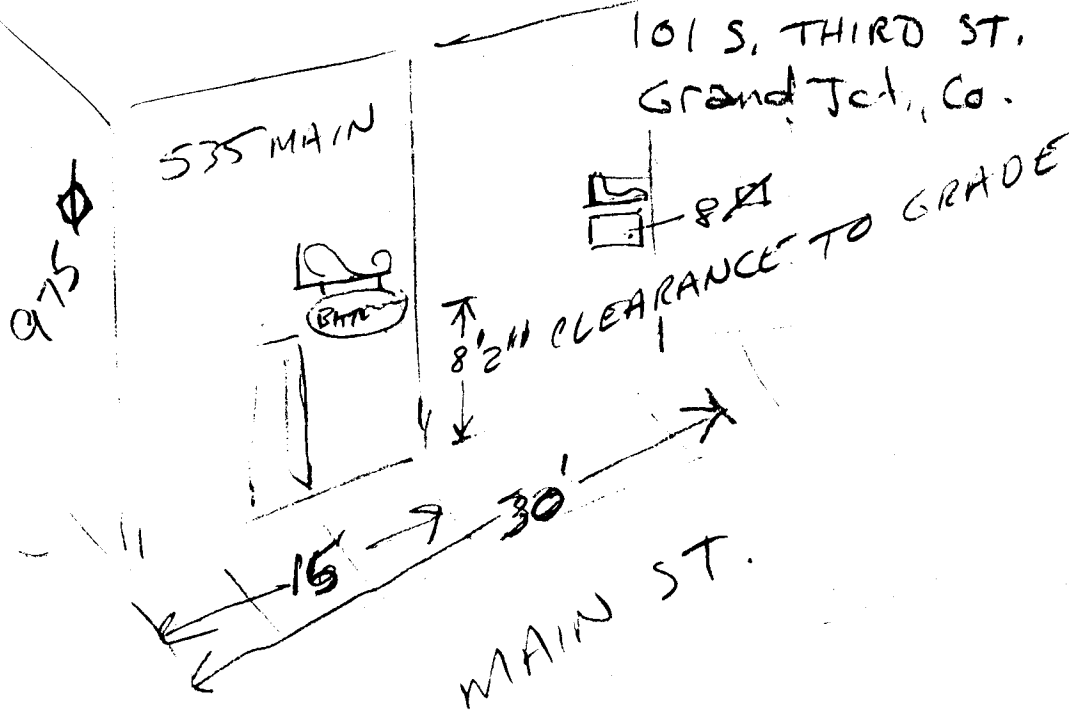 101 S. THIRD ST.
Grand Jct., Co.
535 MAIN
975
8
8'2" CLEARANCE TO GRADE
15'
30'
MAIN ST.